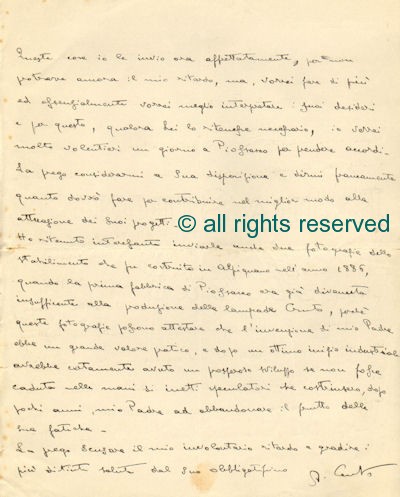 Queste cose io le invio ora affrettatamente, per non
protrarre ancora il mio ritardo, ma, vorrei fare di più
ed essenzialmente vorrei meglio interpretare i Suoi desideri
e per questo, qualora Lei lo ritenesse necessario, io verrei
molto volentieri un giorno a Piossasco per prendere accordi.
La prego considerarmi a Sua disposizione e dirmi francamente
quanto dovrò fare per contribuire nel miglior modo alla
attuazione dei Suoi progetti.
© all rights reserved
Ho ritenuto interessante inviarle anche due fotografie dello
stabilimento che fu costruito in Alpignano nell'anno 1886,
quando la prima fabbrica di Piossasco era già divenuta
insufficiente alla produzione della lampada Cruto, poichè
queste fotografie possono attestare che l'invenzione di mio Padre
ebbe un grande valore pratico, e dopo un ottimo inizio industriale
avrebbe certamente avuto un prosperoso sviluppo se non fosse
caduta nelle mani di inetti speculatori che costrinsero, dopo
pochi anni, mio Padre ad abbandonare il frutto delle
sue fatiche.
La prego scusare il mio involontario ritardo e gradire i
più distinti saluti dal Suo obbligatissimo
Cruto